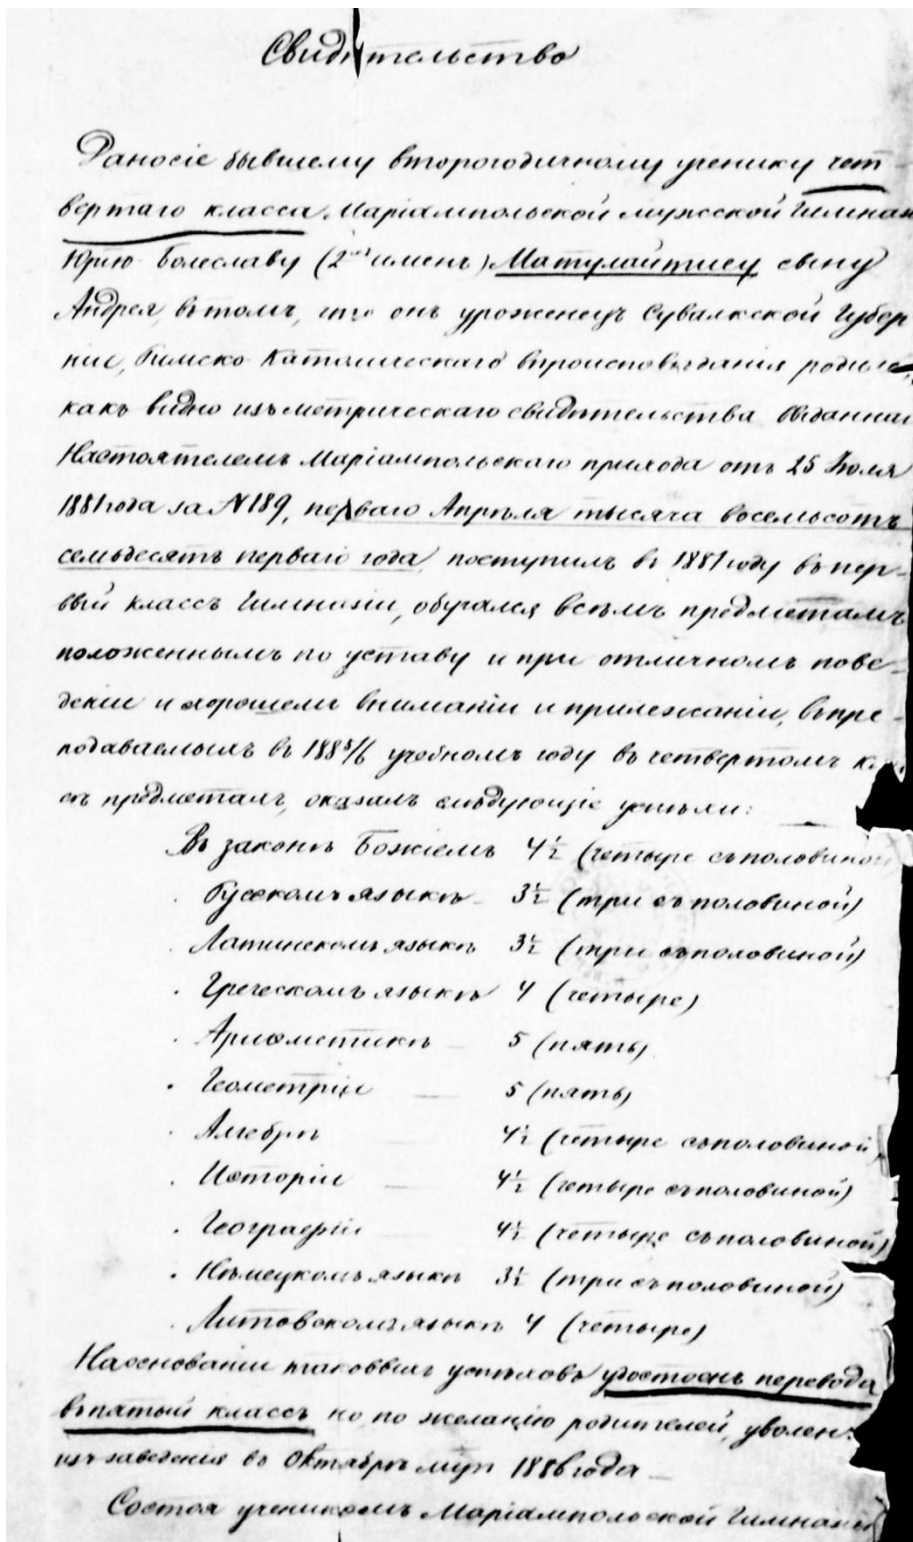 Свидѣтельство
Дано сіе бывшему второгодичному ученику чет-
вертаго класса Маріампольской мужской Гимназ
Юрію-Болеславу (2 имень) Матулайтису сыну
Андрея, въ томъ, что онъ уроженецъ Сувалкской Губер
ніи, Римско-Католическаго вѣроисповѣданія родился,
какъ видно изъ метрическаго свидѣтельства выданнаг
Настоятелемъ Маріампольскаго прихода отъ 25 Іюля
1881 года за N 189, перваго Апрѣля тысяча восемьсотъ
семьдесятъ перваго года, поступилъ въ 1881 году въ пер-
вый классъ Гимназіи, обучался всѣмъ предметамъ
положеннымъ по уставу и при отличномъ пове-
деніи и хорошемъ вниманіи и прилежаніи, въ пре-
подаваемыхъ въ 1885/6 учебномъ году въ четвертомъ клас
сѣ предметахъ, оказалъ слѣдующіе успѣхи:
Въ законѣ Божіемъ 4½ (четыре съ половиной)
. Русскомъ языкѣ - 3½ (три съ половиной)
. Латинскомъ языкѣ 3½ (три съ половиной)
. Греческомъ языкѣ 4 (четыре)
. Ариѳметикѣ — 5 (пять)
. Геометріи — 5 (пять)
. Алгебрѣ — 4½ (четыре съ половиной)
. Исторіи — 4½ (четыре съ половиной)
. Географіи 4½ (четыре съ половиной)
. Нѣмецкомъ языкѣ 3½ (три съ половиной)
. Литовскомъ языкѣ 4 (четыре)
На основаніи таковыхъ успѣховъ удостоенъ перевода
въ пятый классъ, но, по желанію родителей, уволенъ
изъ заведенія въ Октябрѣ м-цѣ 1886 года —
Состоя ученикомъ Маріампольской Гимназіи